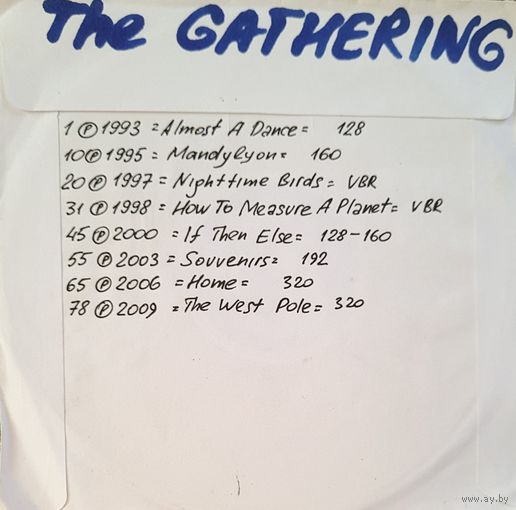 The GATHERING
1 Ⓟ 1993 = Almost A Dance = 128
10 Ⓟ 1995 = Mandylyon = 160
20 Ⓟ 1997 = Nighttime Birds = VBR
31 Ⓟ 1998 = How To Measure A Planet = VBR
45 Ⓟ 2000 = If Then Else = 128-160
55 Ⓟ 2003 = Souvenirs = 192
65 Ⓟ 2006 = Home = 320
78 Ⓟ 2009 = The West Pole = 320
www.ay.by